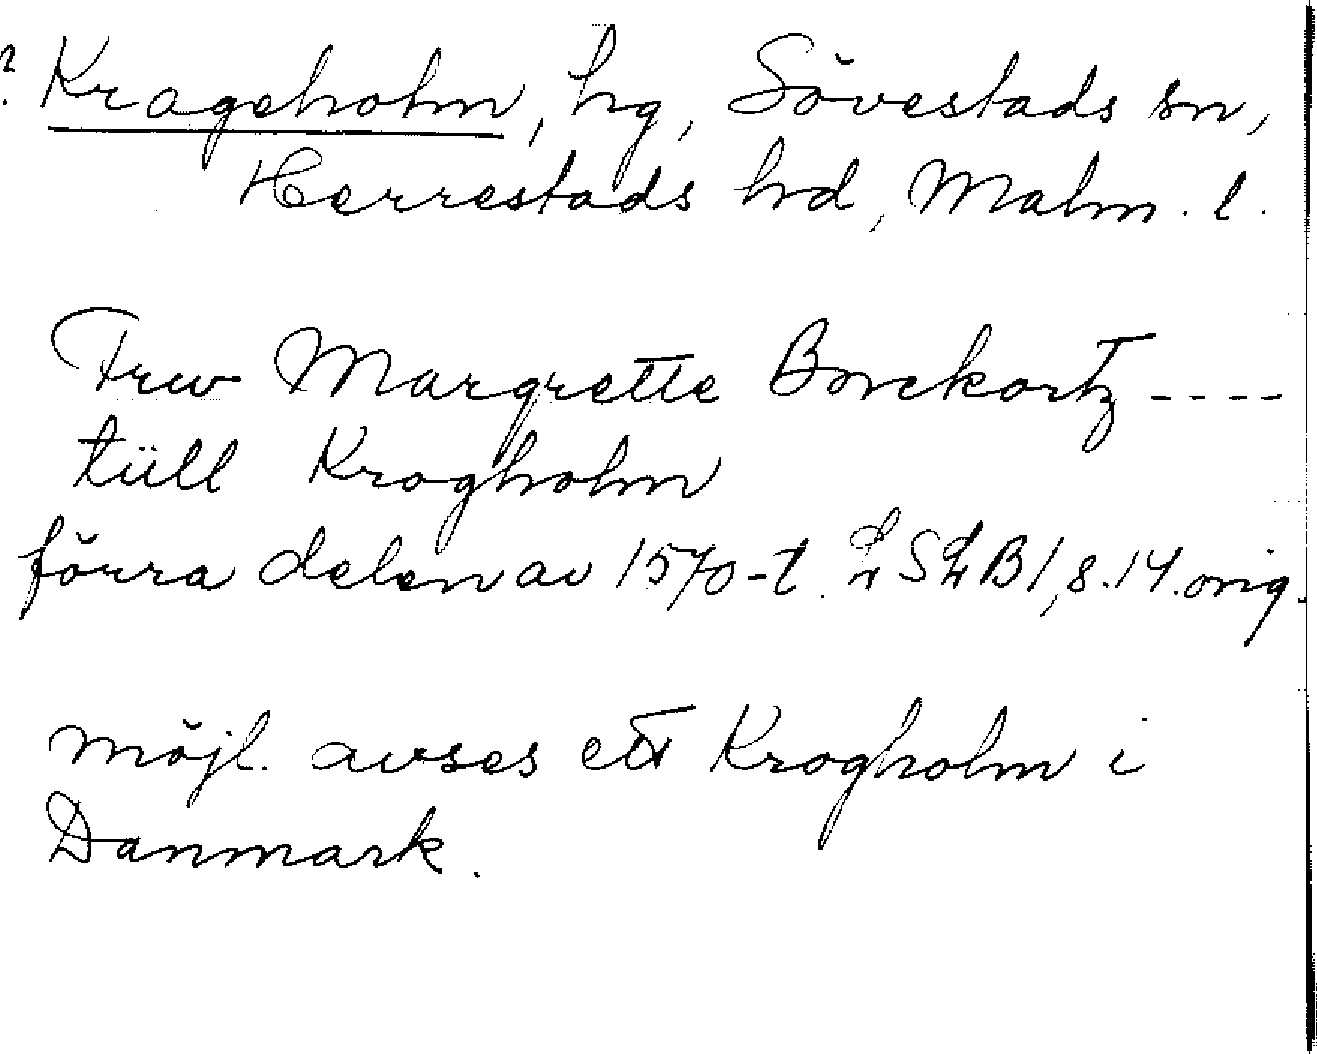 ? Krageholm, hg, Sövestads sn,
Herrestads hd, Malm. l.
Frw Margrette Brockortz ----
tüll Krogholm
förra delen av 1570-t. LSLB1, s. 14. orig.
möjl. avses ett Krogholm i
Danmark.